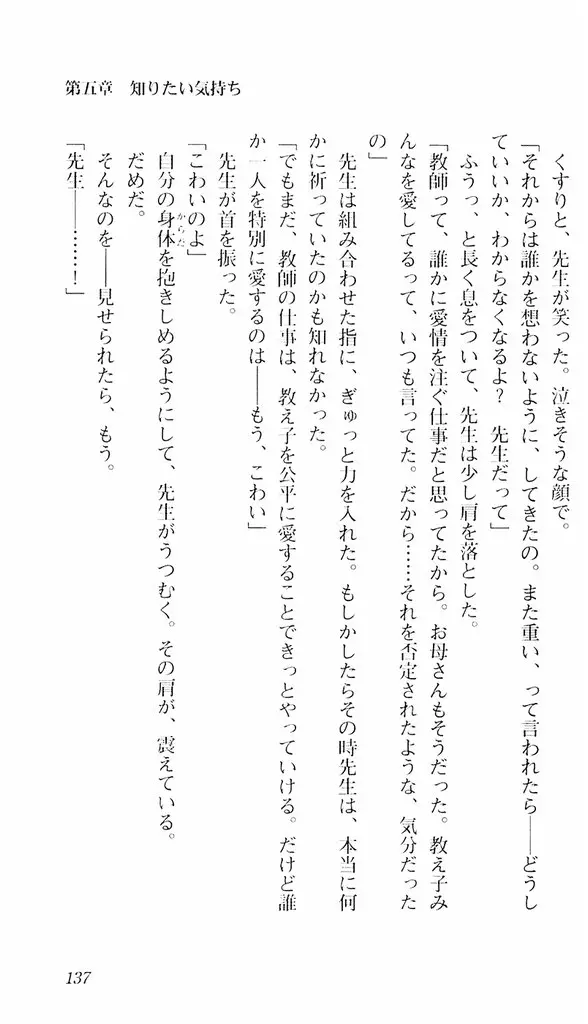 第五章　知りたい気持ち
くすりと、先生が笑った。泣きそうな顔で。
「それからは誰かを想わないように、してきたの。また重い、って言われたら――どうし
ていいか、わからなくなるよ？　先生だって」
ふうっ、と長く息をついて、先生は少し肩を落とした。
「教師って、誰かに愛情を注ぐ仕事だと思ってたから。お母さんもそうだった。教え子み
んなを愛してるって、いつも言ってた。だから……それを否定されたような、気分だった
の」
先生は組み合わせた指に、ぎゅっと力を入れた。もしかしたらその時先生は、本当に何
かに祈っていたのかも知れなかった。
「でもまだ、教師の仕事は、教え子を公平に愛することできっとやっていける。だけど誰
か一人を特別に愛するのは――もう、こわい」
先生が首を振った。
「こわいのよ」
自分の身体を抱きしめるようにして、先生がうつむく。その肩が、震えている。
からだ
だめだ。
そんなのを――見せられたら、もう。
「先生――……！」
137